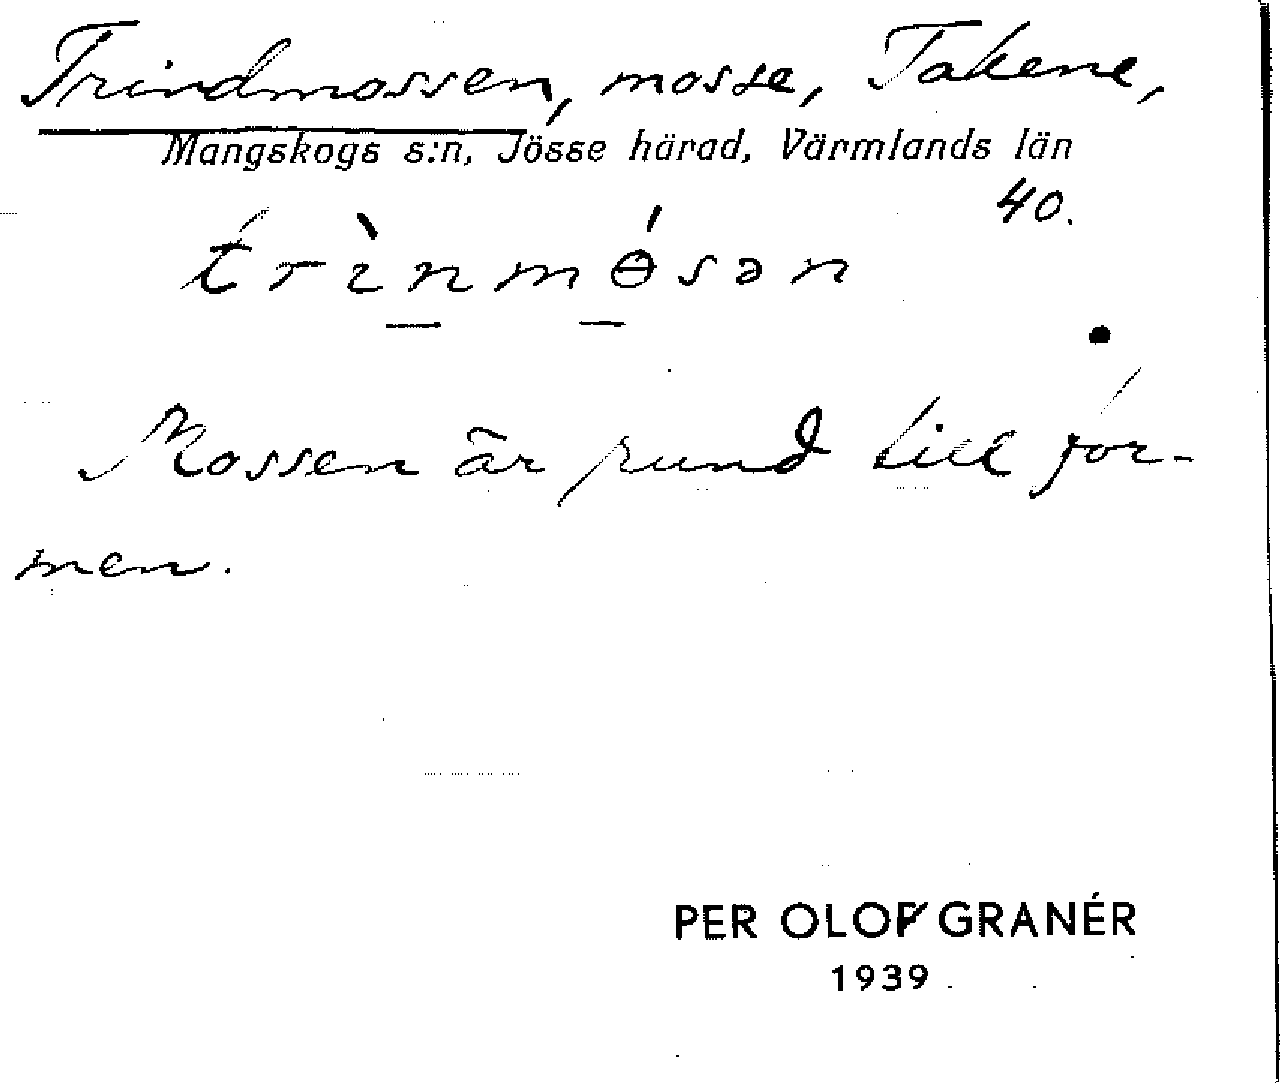 Trindmossen, mosse, Takene,
Mangskogs s:n, Jösse härad, Värmlands län
40.
trìnmө́sən
Mossen är rund till for-
men.
PER OLOF GRANÉR
1939